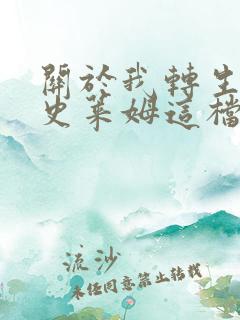 關於我轉生
史萊姆這檔
流沙
未經同意禁止轉載